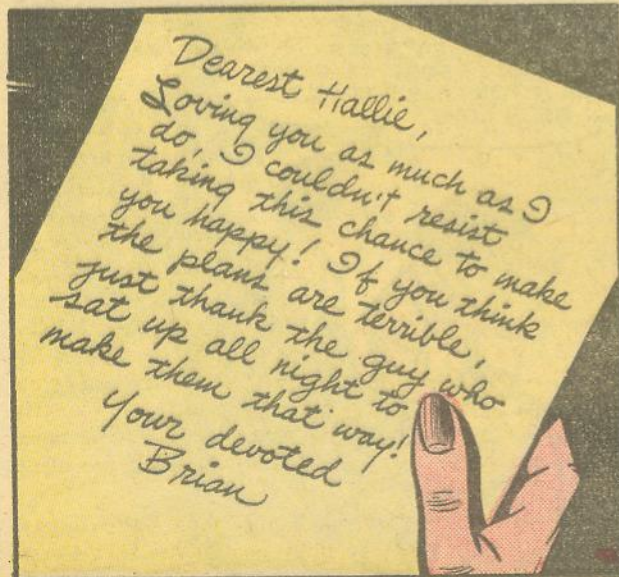 Dearest Hallie,
Loving you as much as I
do, I couldn't resist
taking this chance to make
you happy! If you think
the plans are terrible,
just thank the guy who
sat up all night to
make them that way!
Your devoted
Brian